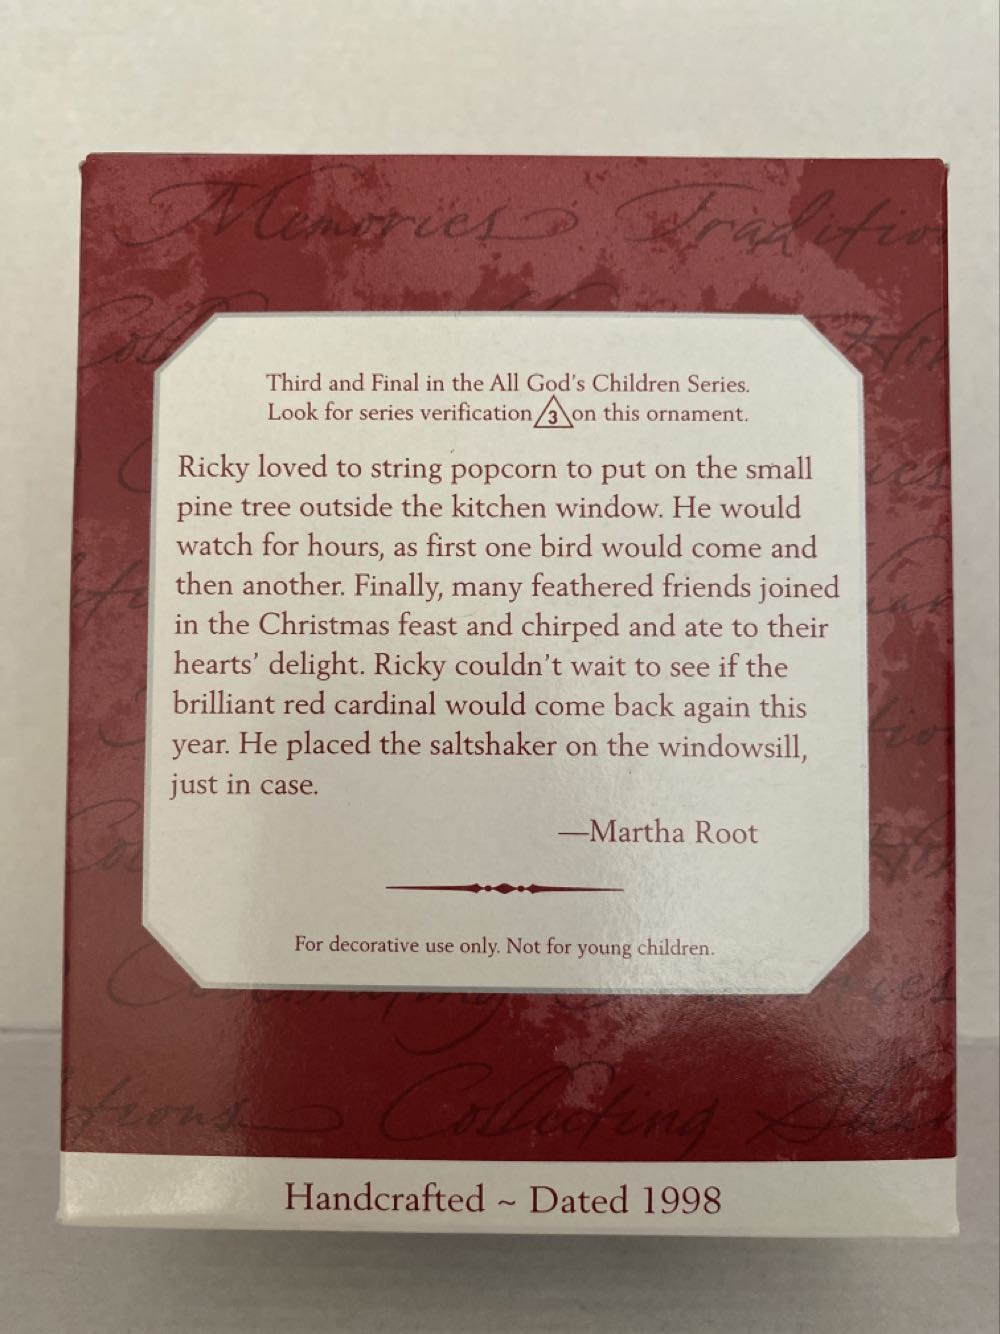 Memories Tradition
Third and Final in the All God's Children Series.
Look for series verification 3 on this ornament.
Ricky loved to string popcorn to put on the small
pine tree outside the kitchen window. He would
watch for hours, as first one bird would come and
then another. Finally, many feathered friends joined
in the Christmas feast and chirped and ate to their
hearts' delight. Ricky couldn't wait to see if the
brilliant red cardinal would come back again this
year. He placed the saltshaker on the windowsill,
just in case.
—Martha Root
For decorative use only. Not for young children.
tions Collecting Shar
Handcrafted ~ Dated 1998